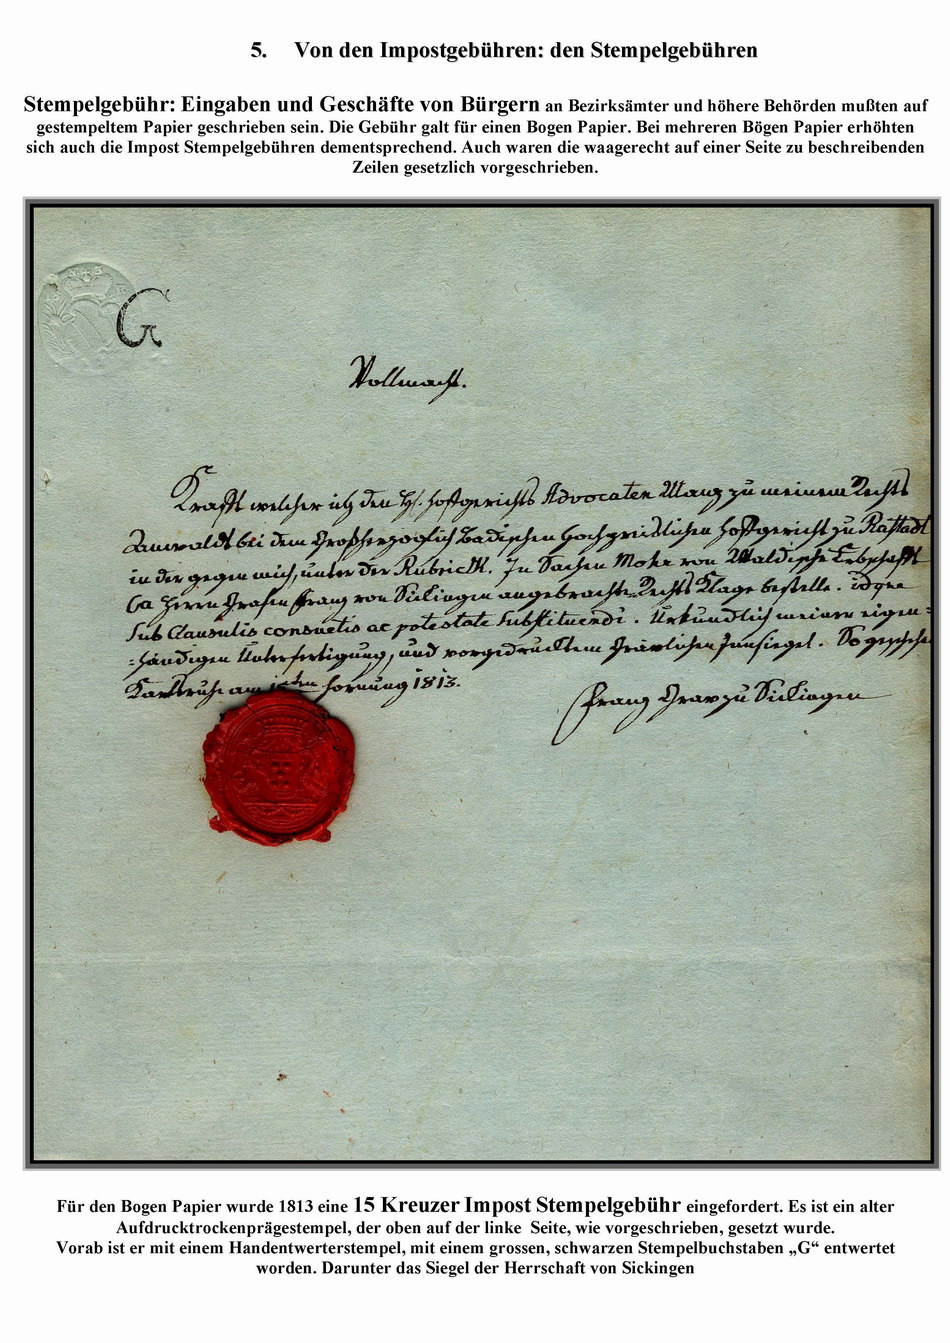 5. Von den Impostgebühren: den Stempelgebühren
Stempelgebühr: Eingaben und Geschäfte von Bürgern an Bezirksämter und höhere Behörden mußten auf
gestempeltem Papier geschrieben sein. Die Gebühr galt für einen Bogen Papier. Bei mehreren Bögen Papier erhöhten
sich auch die Impost Stempelgebühren dementsprechend. Auch waren die waagerecht auf einer Seite zu beschreibenden
Zeilen gesetzlich vorgeschrieben.
G
Vollmacht.
Krafft welcher ich den H. Hofgerichts Advocaten Manz zu meinem Rechts
Anwaldt bei dem Großherzoglich Badischen Hochpreislichen Hofgericht zu Rastadt
in der gegen mich, unter der Rubrick. In Sachen Mohr von Waldische
Ca Herrn Grafen Franz von Sickingen angebrachte Rechts Klage bestelle. idque
sub Clausulis consuetis ac potestate substituendi. Urkundlich meiner eigen=
=händigen Unterfertigung, und vorgedrucktem Grävlichen Innsiegel. So geschehen
Karlsruhe am Hornung 1813.
Franz Grav zu Sickingen
Für den Bogen Papier wurde 1813 eine 15 Kreuzer Impost Stempelgebühr eingefordert. Es ist ein alter
Aufdrucktrockenprägestempel, der oben auf der linke Seite, wie vorgeschrieben, gesetzt wurde.
Vorab ist er mit einem Handentwerterstempel, mit einem grossen, schwarzen Stempelbuchstaben „G“ entwertet
worden. Darunter das Siegel der Herrschaft von Sickingen